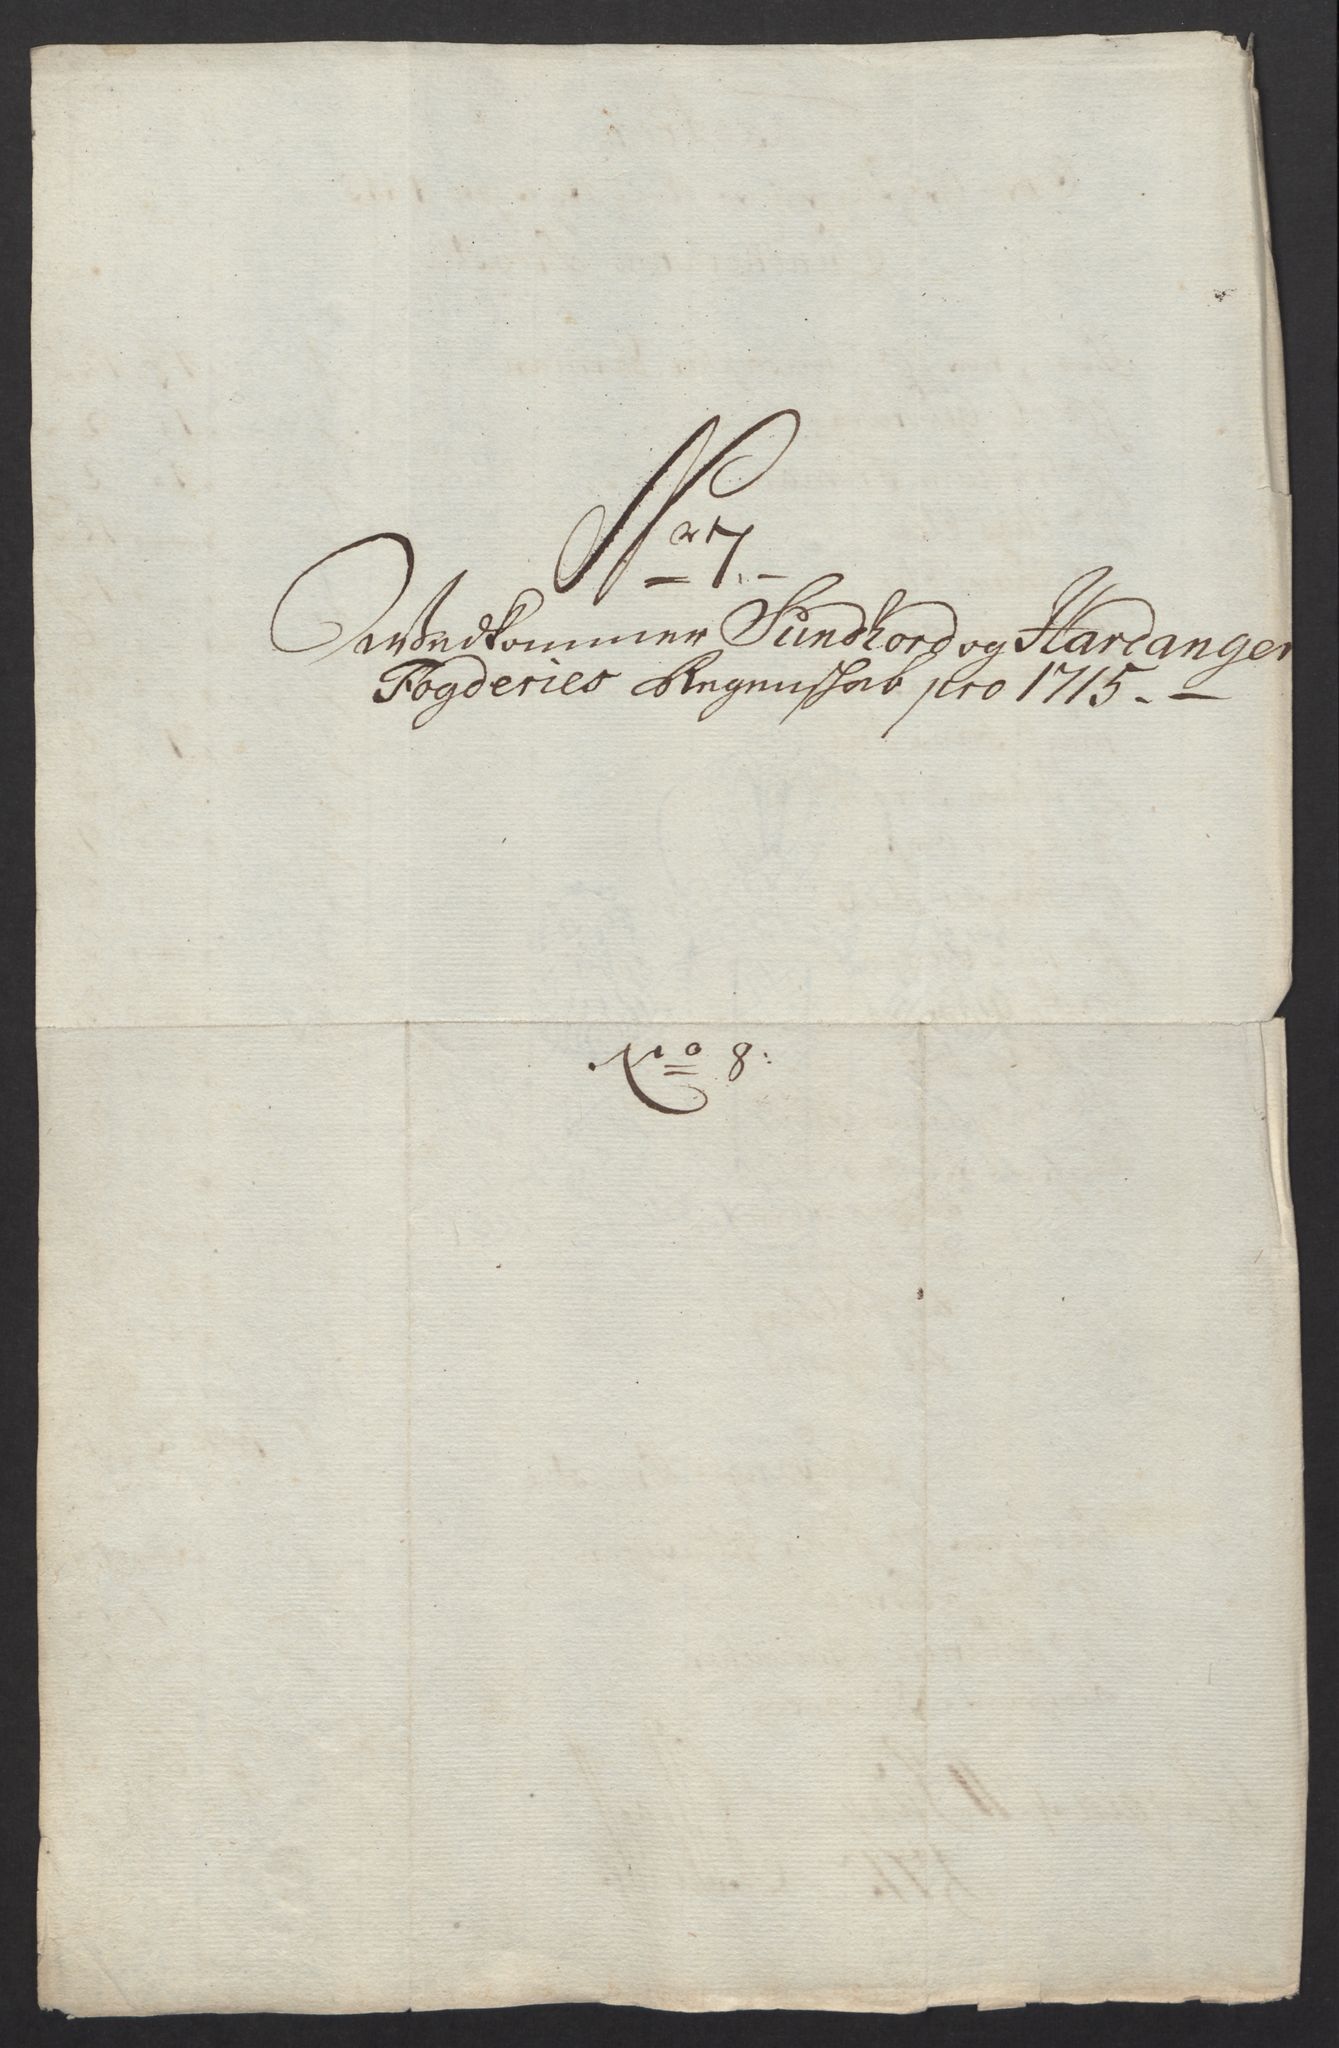 Nr 7.
Vedkommer Sundhord og Hardanger
Fogderies Regenskab pro 1715.
No 8: